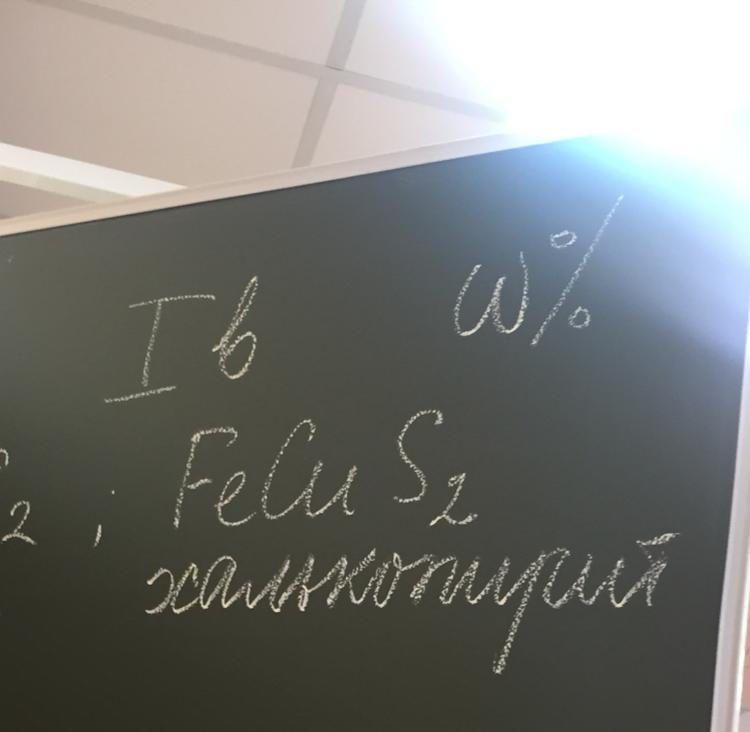 Iв ω%
2 ; FeCuS2
халькопирит